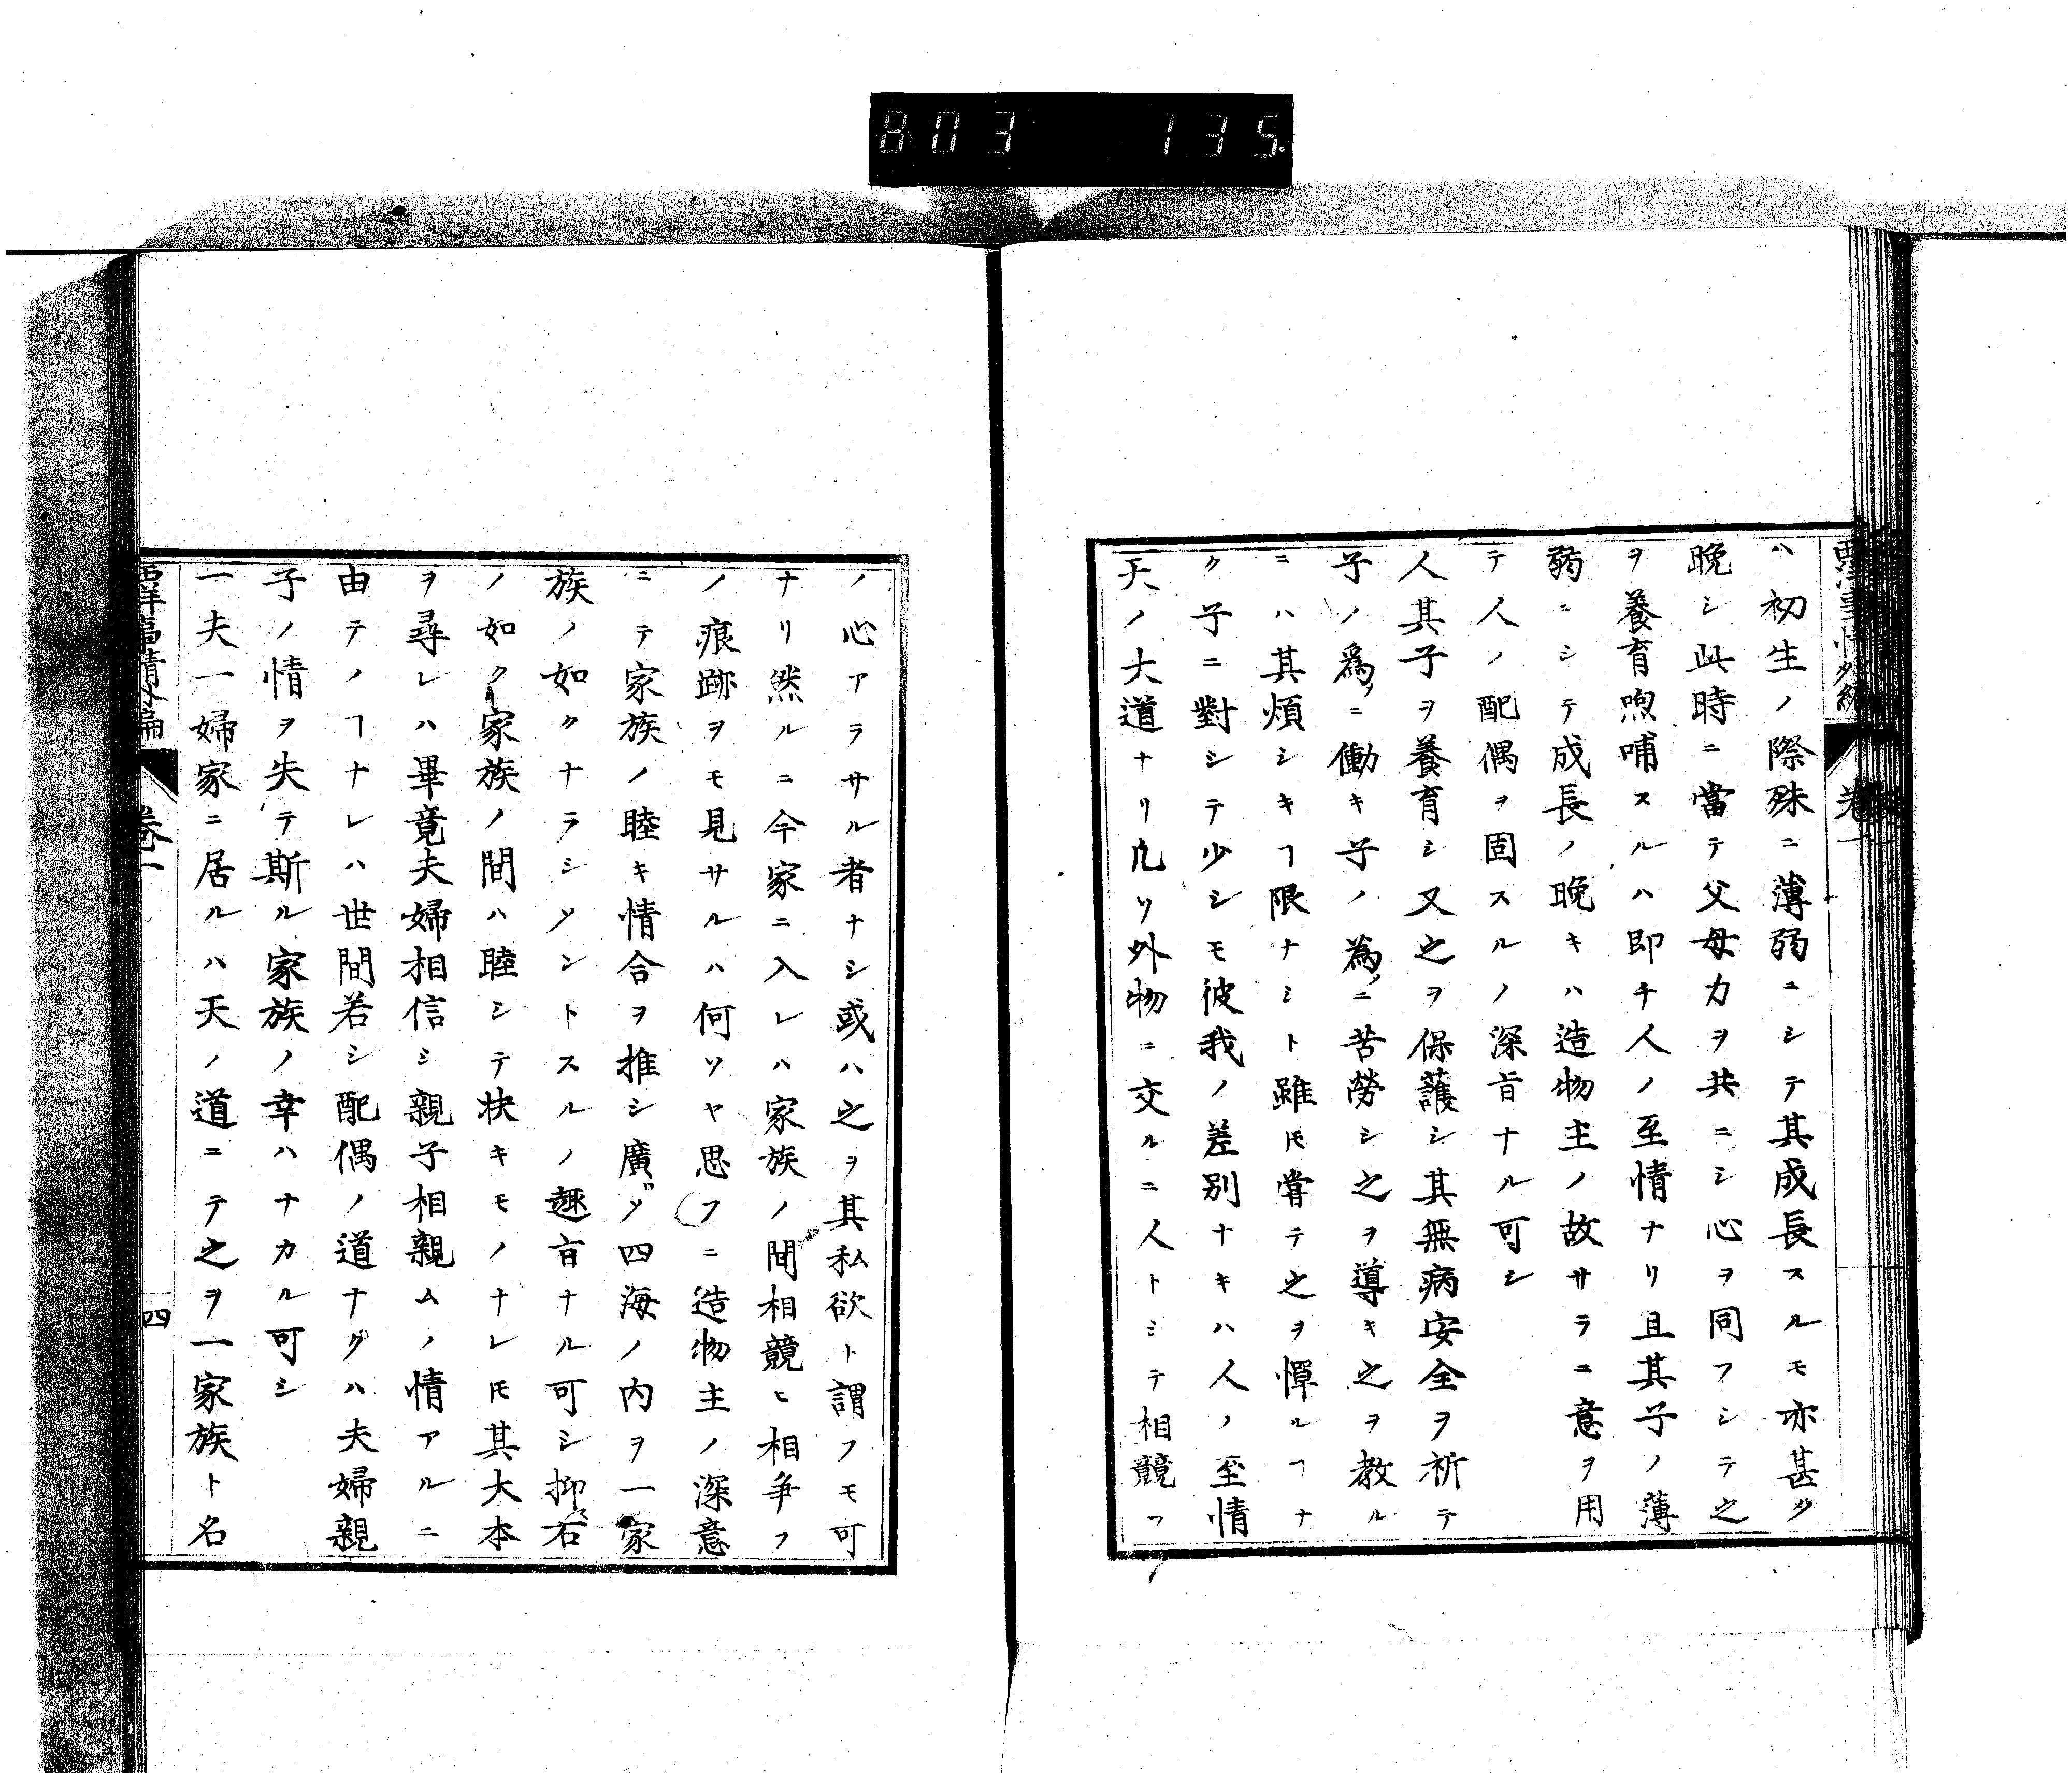 803 135.
ハ初生ノ際殊ニ薄弱ニシテ其成長スルモ亦甚タ
晩シ此時ニ當テ父母力ヲ共ニシ心ヲ同フシテ之
ヲ養育喣哺スルハ即チ人ノ至情ナリ且其子ノ薄
弱ニシテ成長ノ晩キハ造物主ノ故サラニ意ヲ用
テ人ノ配偶ヲ固スルノ深旨ナル可シ
人其子ヲ養育シ又之ヲ保護シ其無病安全ヲ祈テ
子ノ爲ノニ働キ子ノ為ノニ苦勞シ之ヲ導キ之ヲ教ル
ニハ其煩シキヿ限ナシト雖𪜈嘗テ之ヲ憚ルヿナ
ク子ニ對シテ少シモ彼我ノ差別ナキハ人ノ至情
天ノ大道ナリ凡ソ外物ニ交ルニ人トシテ相競フ
ノ心アラサル者ナシ或ハ之ヲ其私欲ト謂フモ可
ナリ然ルニ今家ニ入レハ家族ノ間相競ヒ相爭フ
ノ痕跡ヲモ見サルハ何ソヤ思フニ造物主ノ深意
ニテ家族ノ睦キ情合ヲ推シ廣ヅメ四海ノ内ヲ一家
族ノ如クナラシメントスルノ趣旨ナル可シ抑〻右
ノ如ク家族ノ間ハ睦シテ快キモノナレ𪜈其大本
ヲ尋レハ畢竟夫婦相信シ親子相親ムノ情アルニ
由テノヿナレハ世間若シ配偶ノ道ナクハ夫婦親
子ノ情ヲ失テ斯ル家族ノ幸ハナカル可シ
一夫一婦家ニ居ルハ天ノ道ニテ之ヲ一家族ト名
西洋事情外編 卷一 四